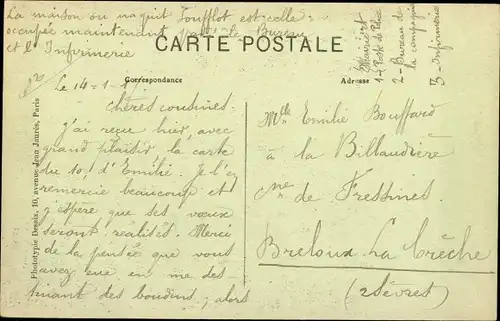 La maison ou naquit Soufflot est celle
occupée maintenant par le Bureau
et l'Infirmerie
CARTE POSTALE
Mairie et
1 - Poste de Police
2 - Bureau de
la compagnie
3 - Infirmerie
Correspondance
Adresse
Le 14-1-17
chères cousines
j'ai reçu hier, avec
grand plaisir la carte
du 10, d'Emilie. Je l'en
remercie beaucoup et
j'espère que ses vœux
seront réalisés. Merci
de la pensée que vous
avez eue en me des
tinant des boudins, alors
Mlle Emilie Bouffard
à la Billaudière
Cne de Fressines
Breloux La Crèche
(2 Sèvres)
Phototypie Dessix, 10, avenue Jean Jaurès, Paris